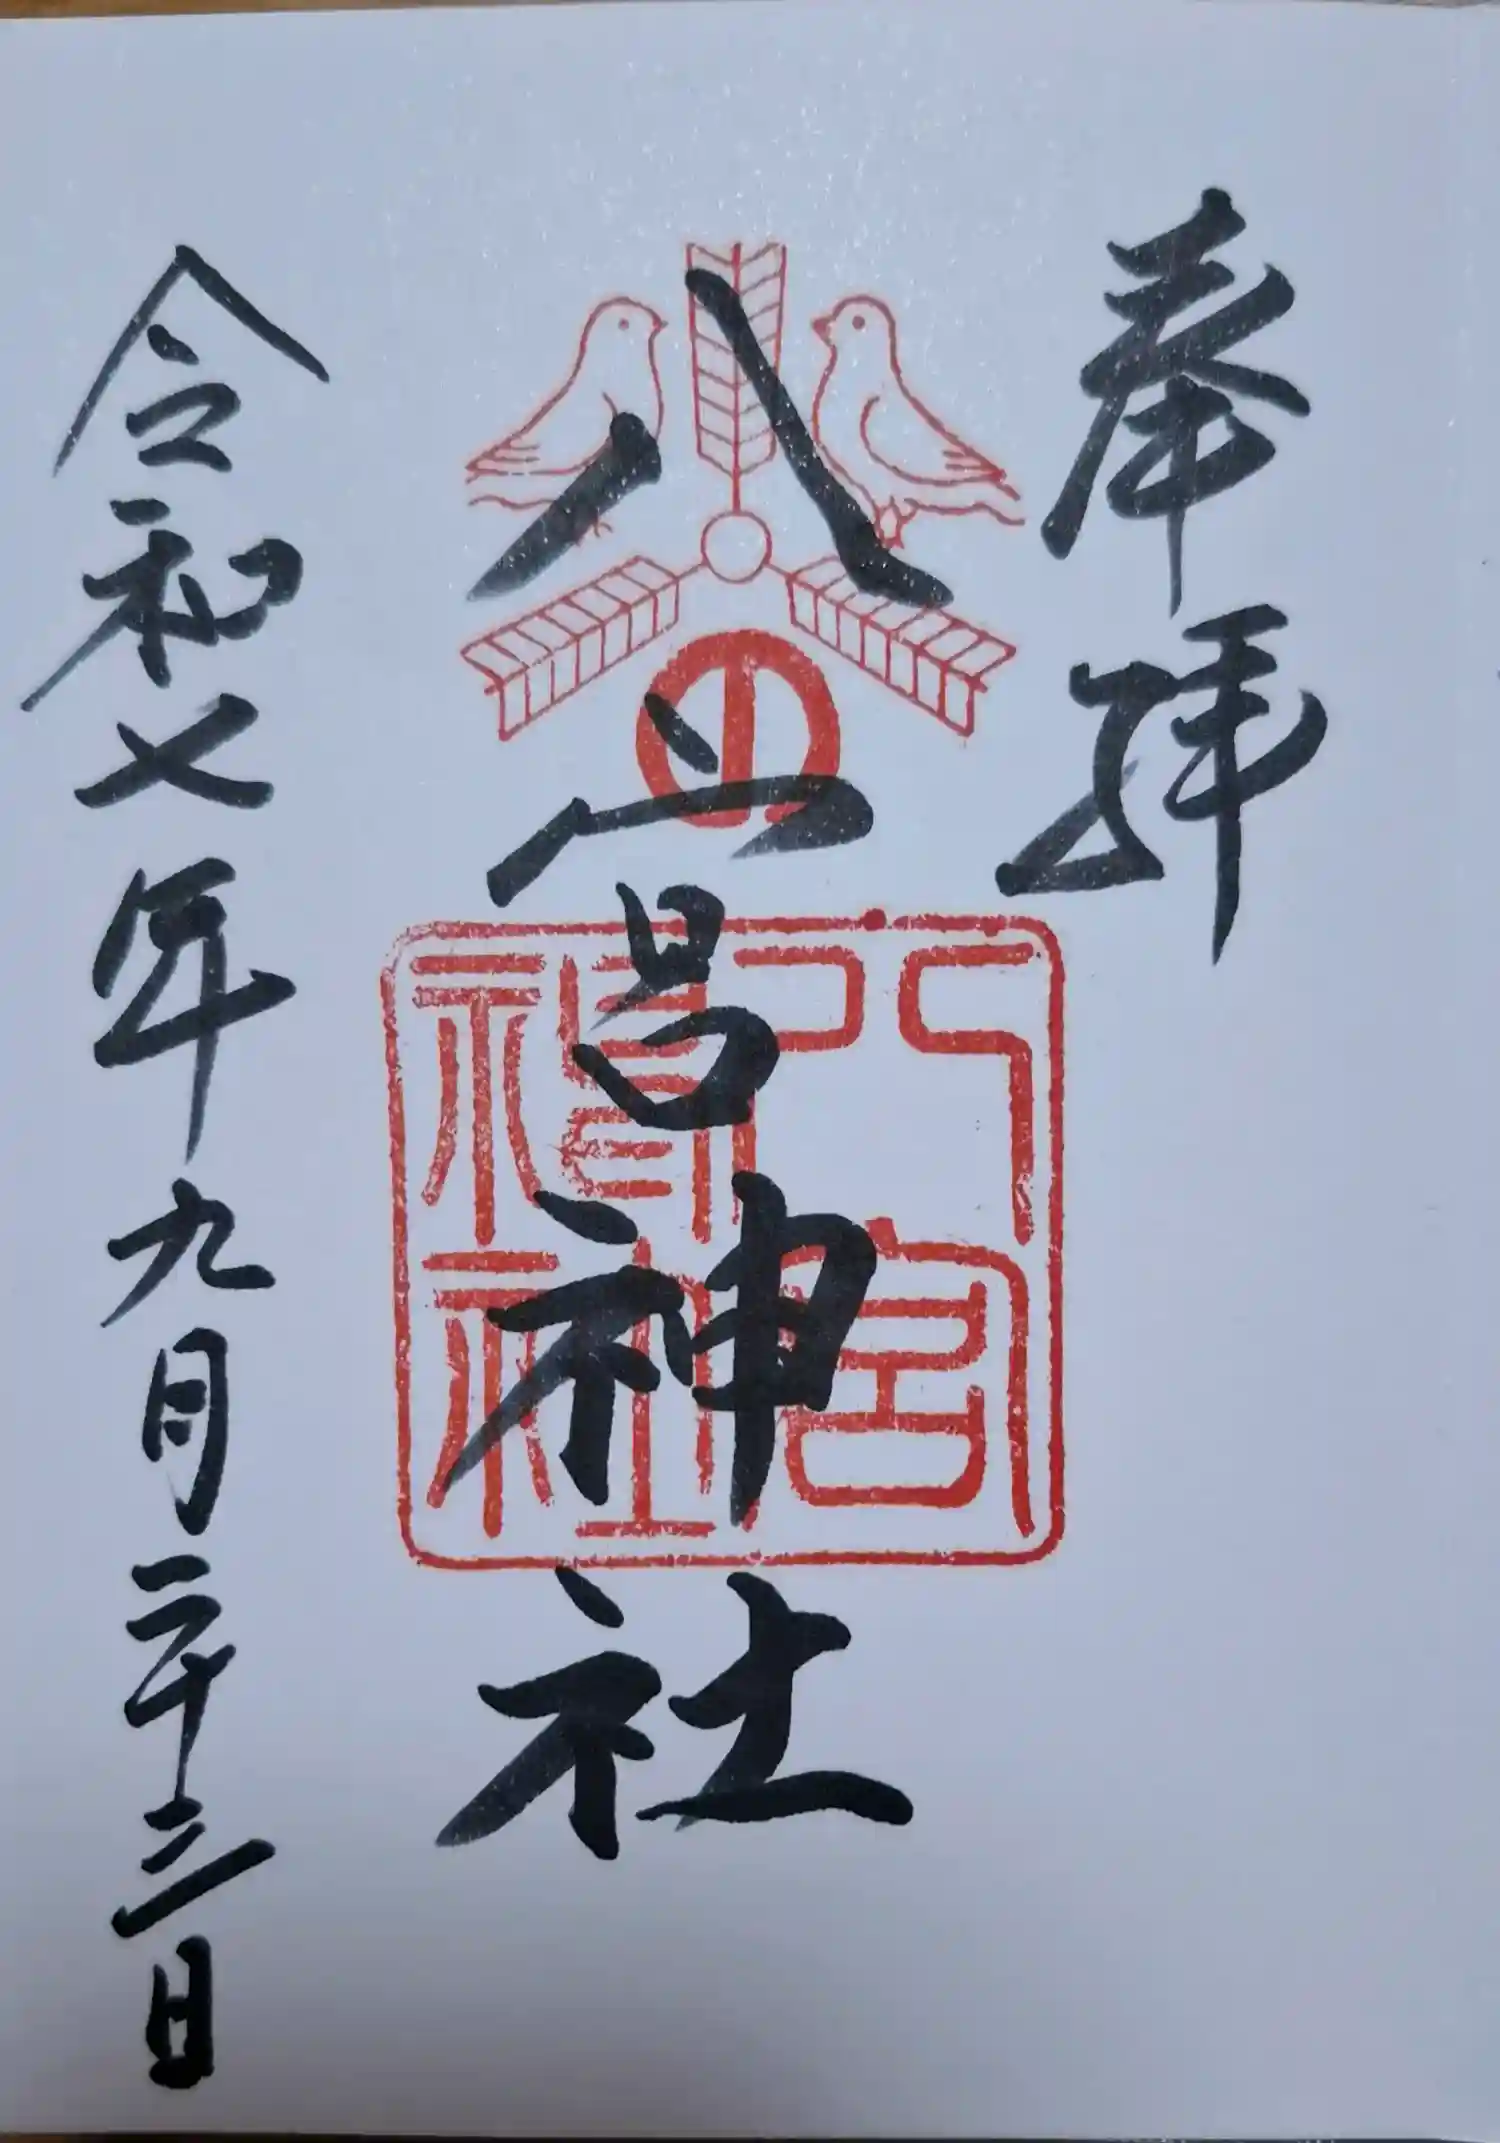 奉拝
八宮神社
八宮神社
令和七年九月二十三日